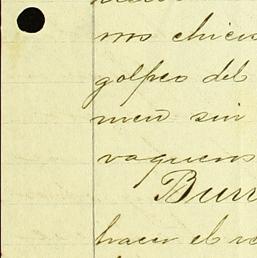 mos chicos
golpeo del
men sin
vaqueros
Burr
hacer el re